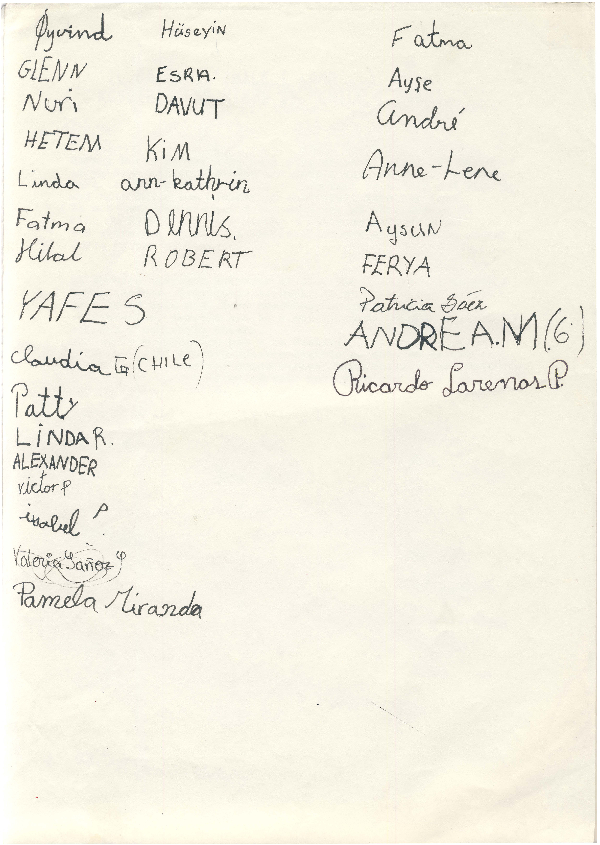 Øyvind
GLENN
Nuri
HETEM
Linda
Fatma
Hilal
YAFES
Claudia G (CHILE)
Patty
LiNDA R.
ALEXANDER
victor P
isabel P.
Valeria Yañez P
Pamela Miranda
Hüseyin
ESRA.
DAVUT
KiM
ann-kathrin
DENNIS.
ROBERT
Fatma
Ayşe
André
Anne-Lene
Aysun
FERYA
Patricia Báez
ANDREA.M(6)
Ricardo Larenas P.